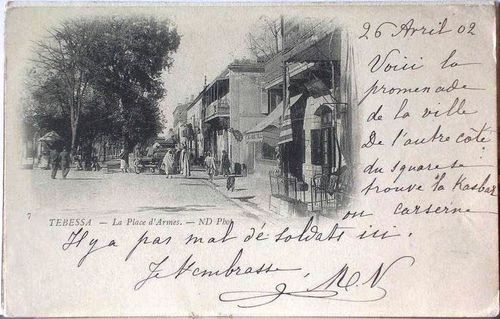 26 Avril 02
Voici la
promenade
de la ville
De l'autre côté
du square se
trouve la Kasbah
7
TEBESSA. — La Place d'Armes. — ND Phot.
ou caserne
Il y a pas mal de soldats ici.
Je t'embrasse
M N